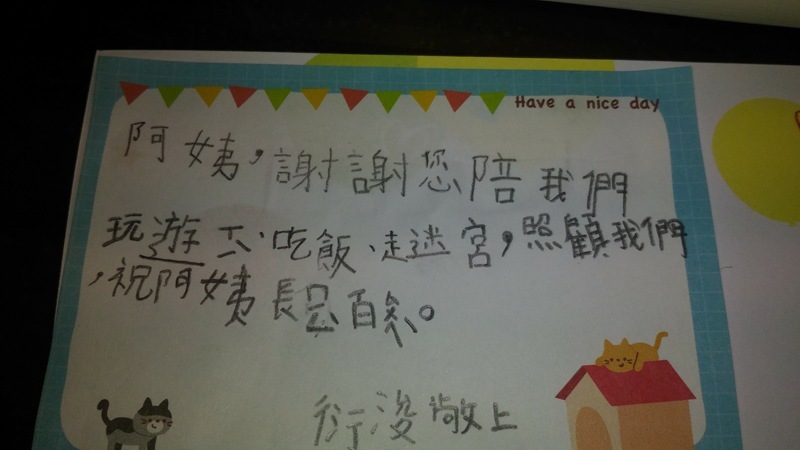 Have a nice day
阿姨,謝謝您陪我們
玩遊、吃飯、走迷宮,照顧我們
,祝阿姨長百。
衍浚敬上